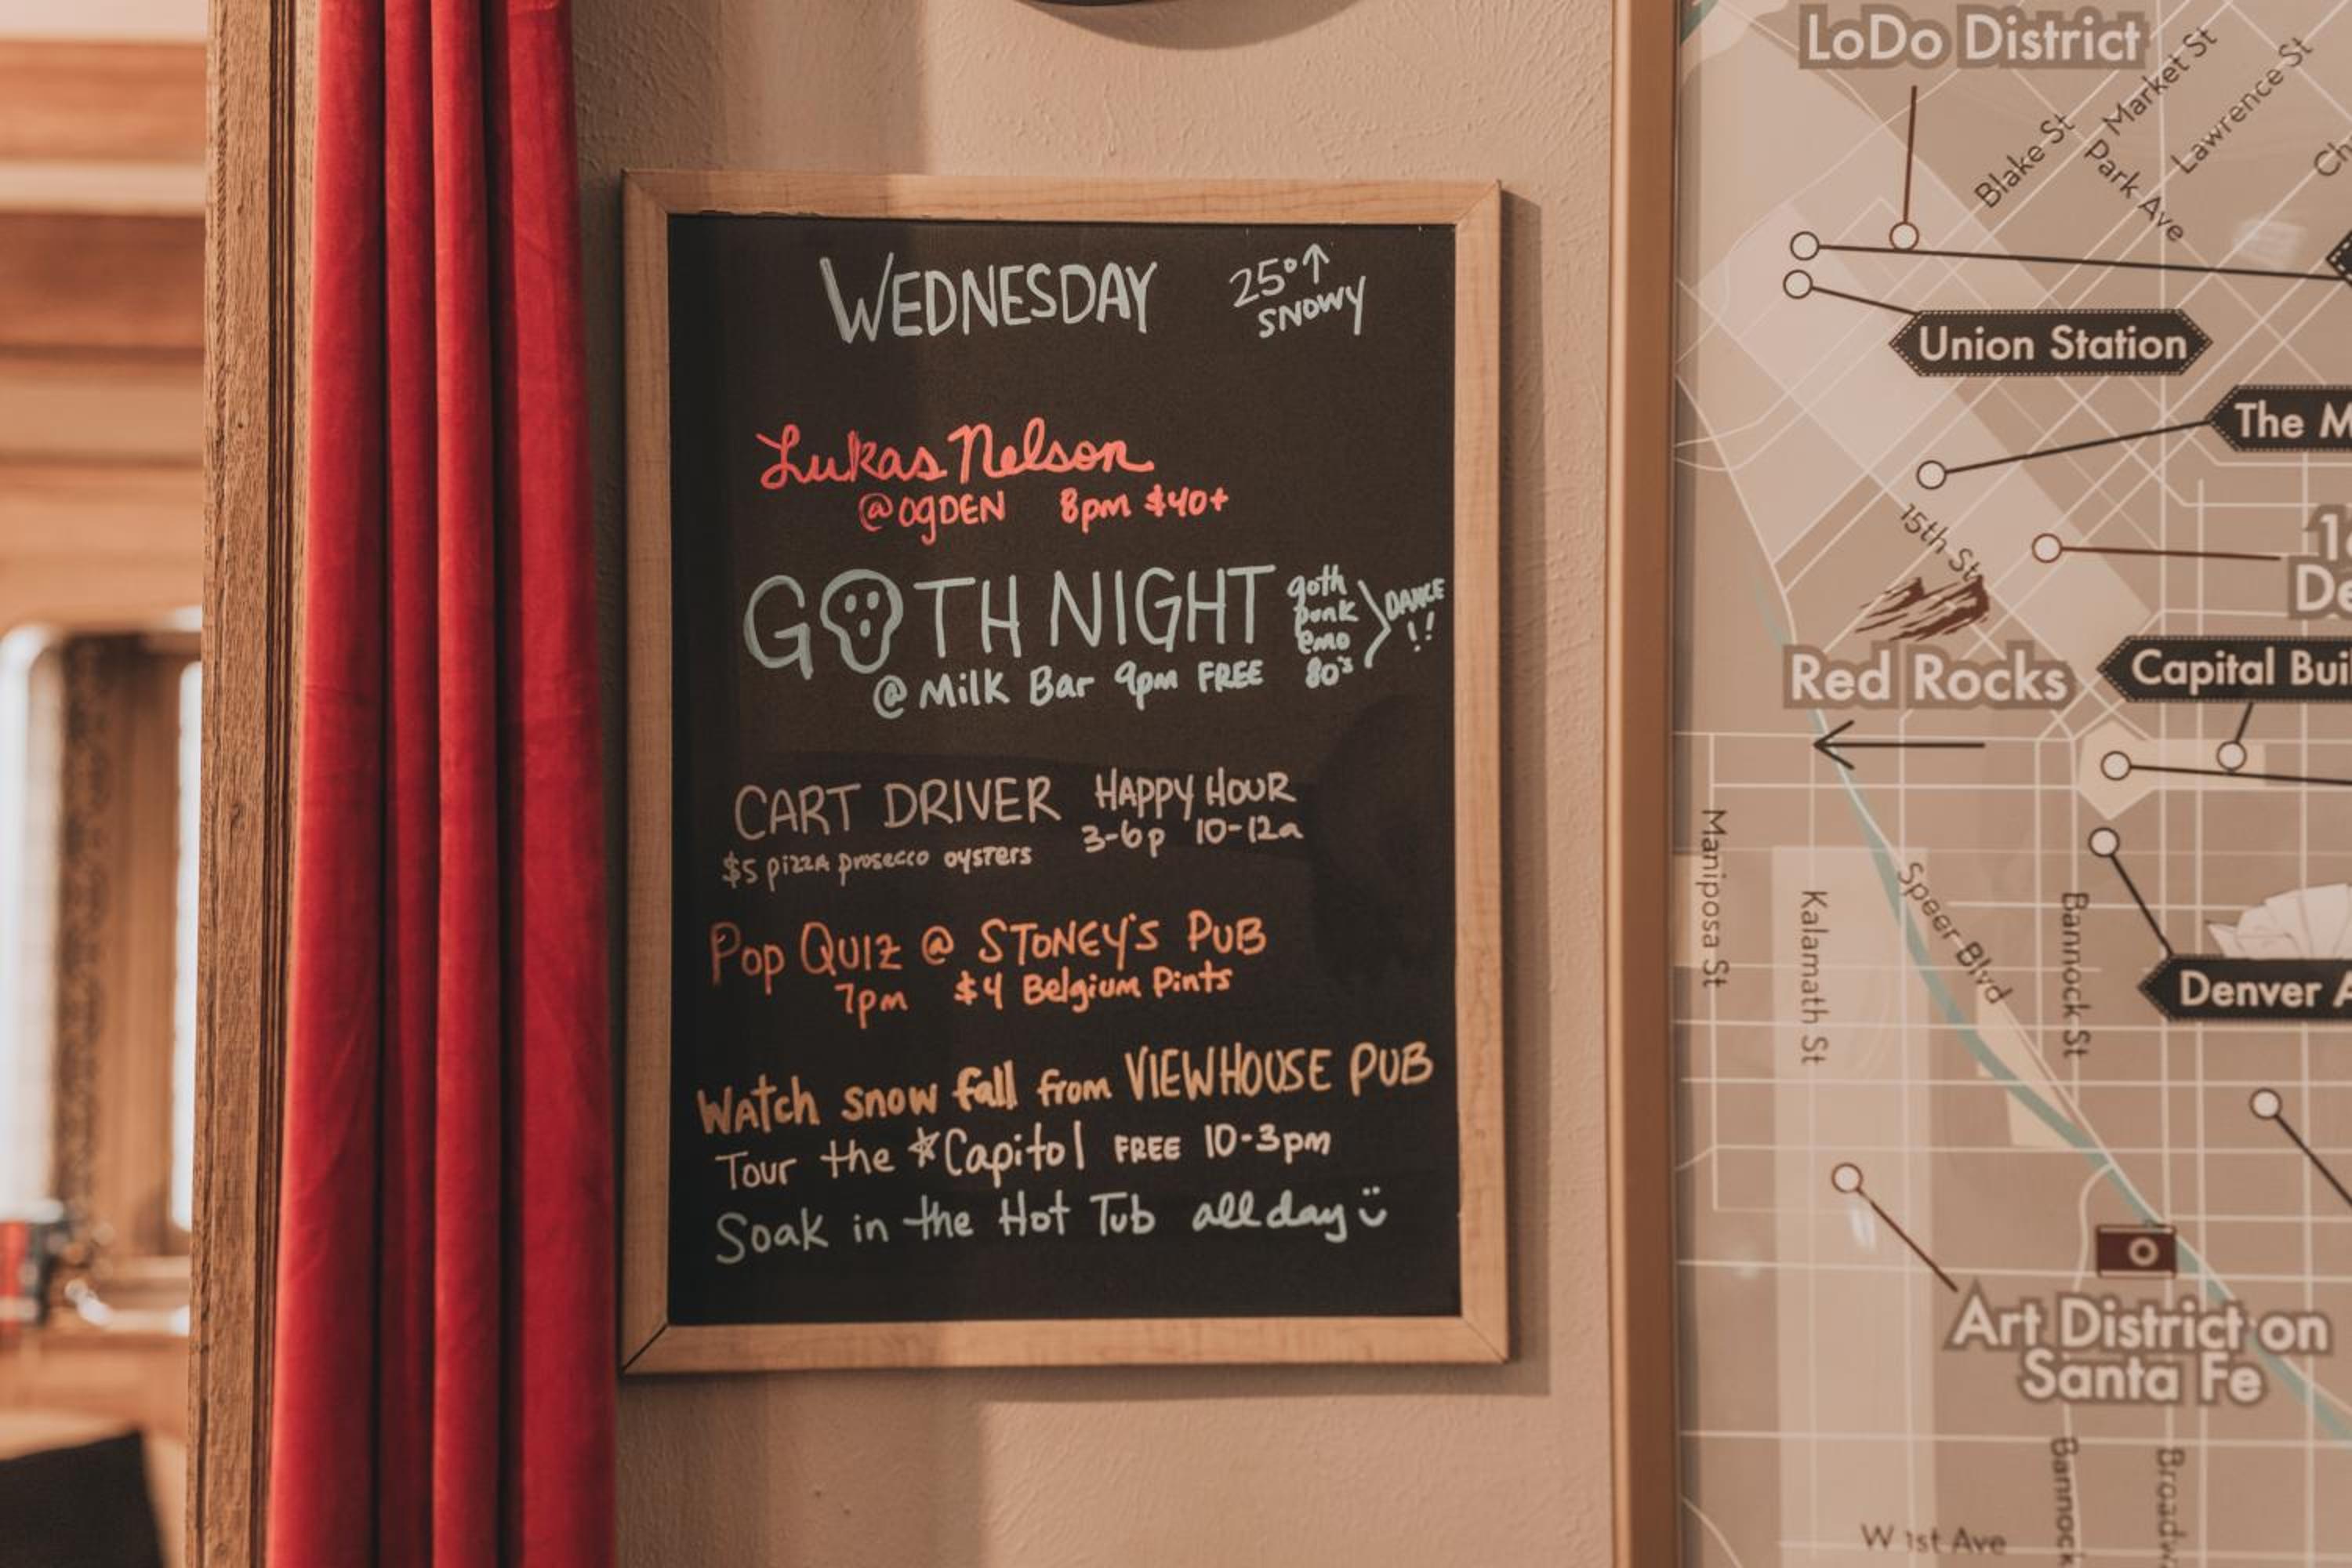 WEDNESDAY 25°↑
SNOWY
Lukas Nelson
@OgDEN 8pm $40+
GOTH NIGHT goth
punk
emo
80's
DANCE
!!
@ Milk Bar 9pm FREE
CART DRIVER HAPPY HOUR
3-6p 10-12a
$5 pizza prosecco oysters
Pop Quiz @ STONEY'S PUB
7pm $4 Belgium Pints
Watch snow fall from VIEWHOUSE PUB
Tour the *Capitol FREE 10-3pm
Soak in the Hot Tub all day
LoDo District
Market St
Lawrence St
Blake St
Park Ave
Ch
Union Station
The M
15th St
16
De
Red Rocks
Capital Buil
Mariposa St
Kalamath St
Speer Blvd
Bannock St
Denver A
Art District on
Santa Fe
Bannock
Broadw
W 1st Ave